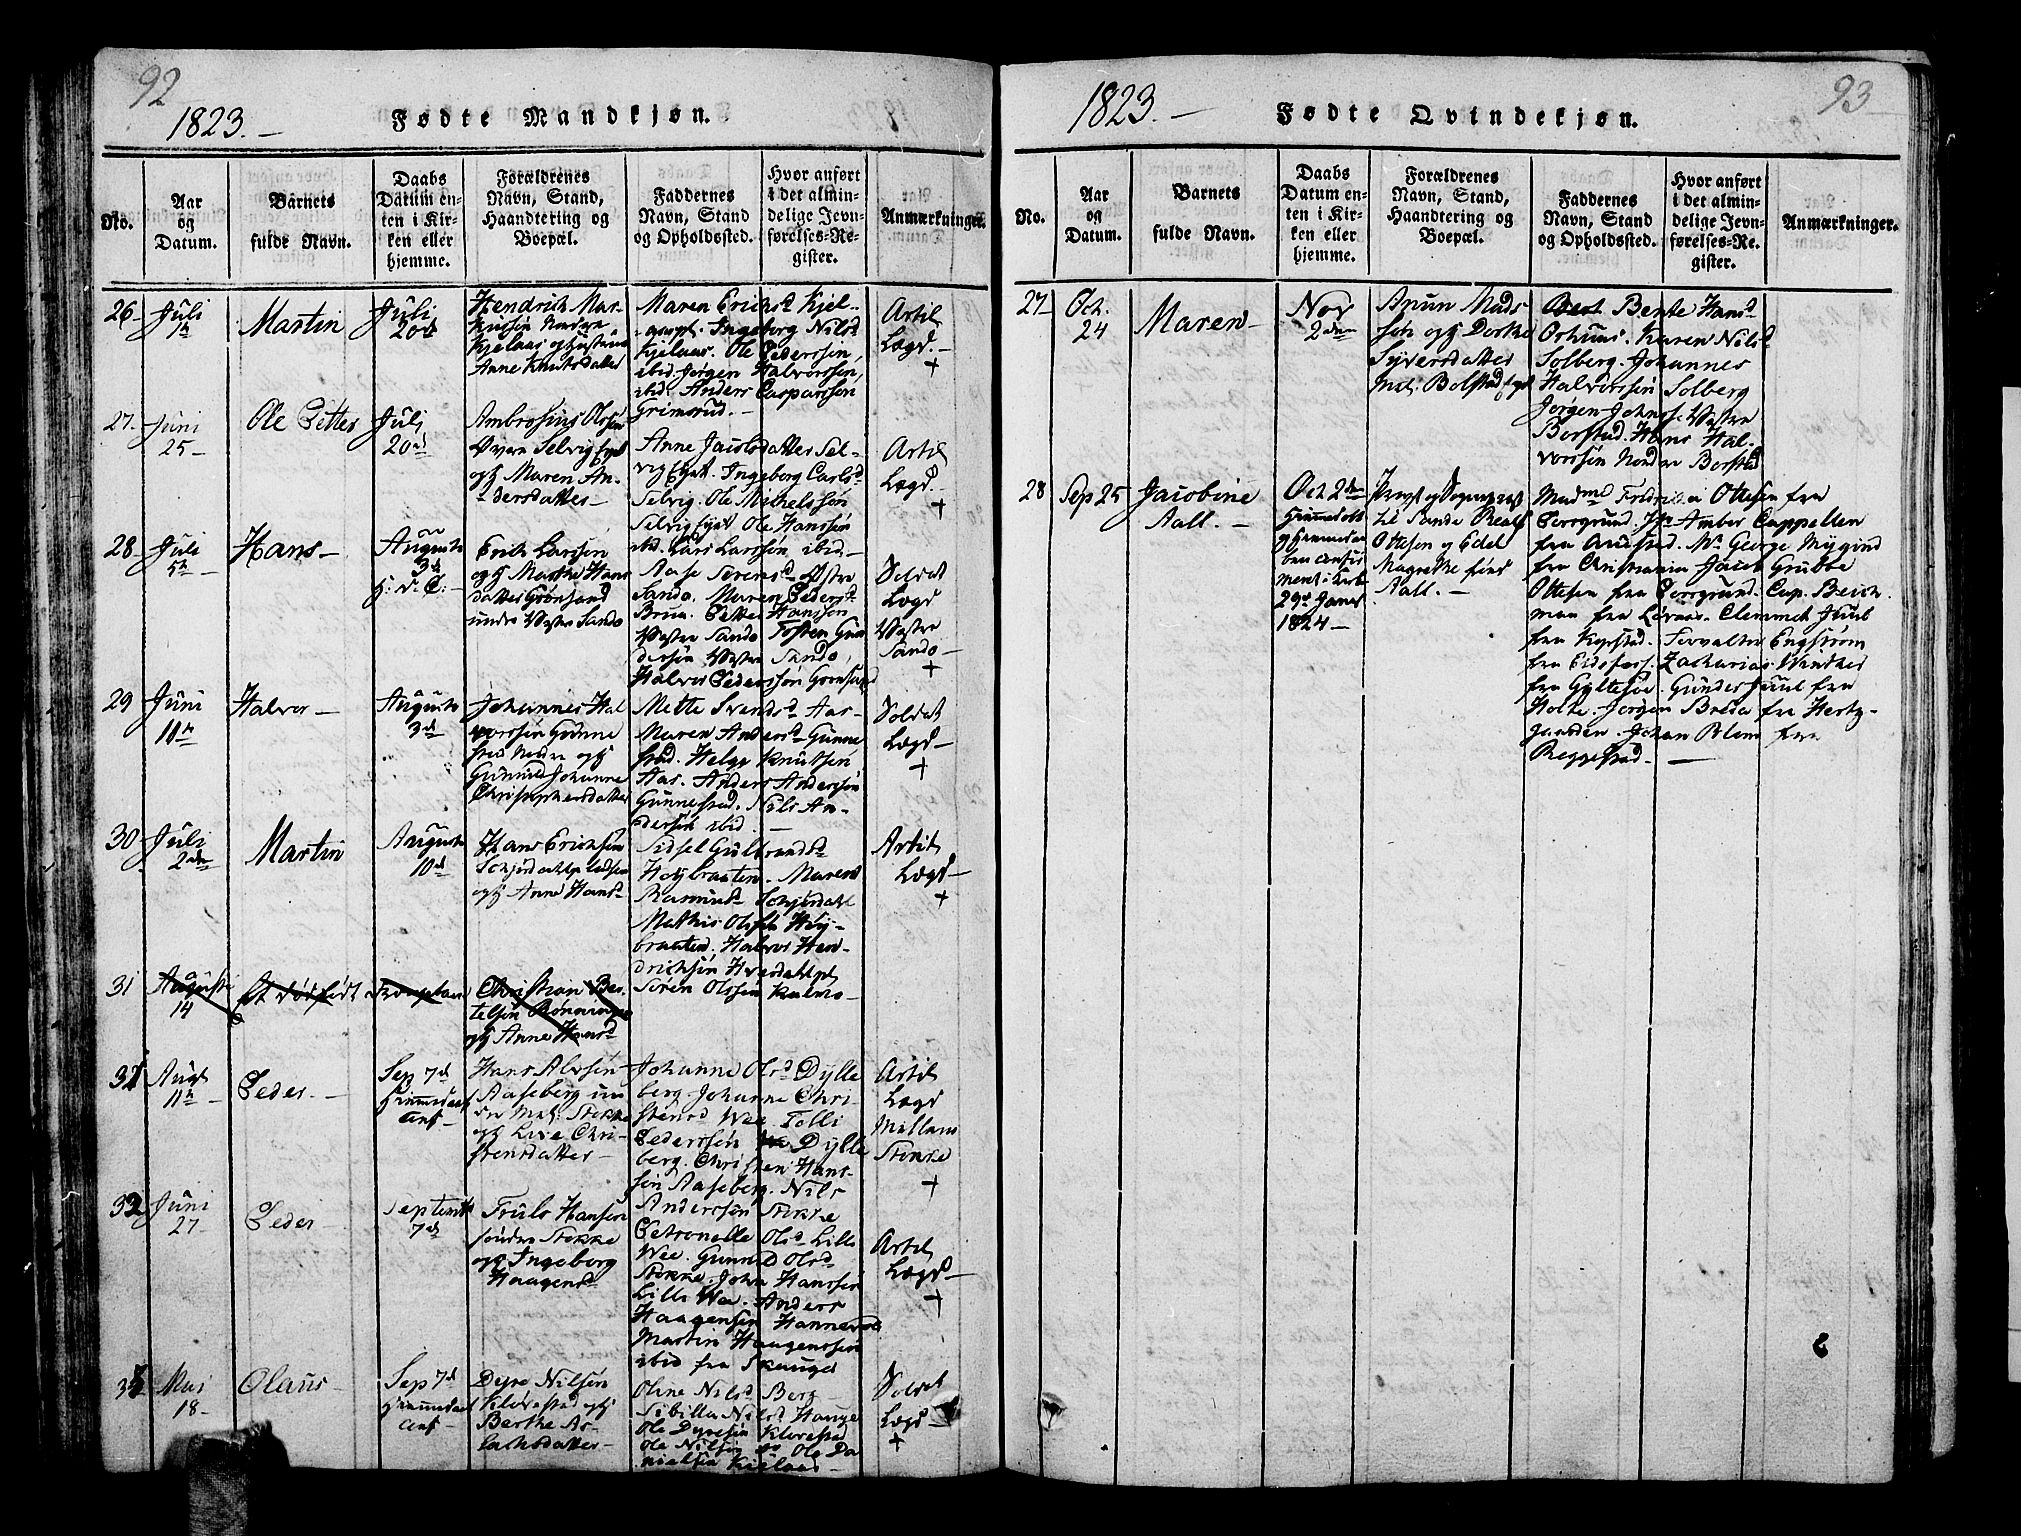 92
1823. –
Fødte Mandkjøn.
No.
Aar
og
Datum.
Barnets
fulde Navn.
Daabs
Datum en-
ten i Kir-
ken eller
hjemme.
Forældrenes
Navn, Stand,
Haandtering og
Boepæl.
Faddernes
Navn, Stand
og Opholdssted.
Hvor anført
i det almin-
delige Jevn-
førelses-Re-
gister.
Anmærkninger.
26
Juli
Martin
Juli
20d
Hendrich Mar-
Kjelaas og Hustrue
Anne Knutsdatter
Maren Erichsd Kjel-
Ingeborg Nilsd
Kjelaas. Ole Pederssøn,
ibid. Jørgen Halvorssøn,
ibid. Anders Casparssøn
Grimsrud. –
Artil
Lægd –
+
27.
Juni
25 –
Ole Petter
Juli
20d
Ambrosius Olssøn
Øvre Selvig
og Maren An-
dersdatter –
Anne Jacobsdatter Sel-
vig Ingeborg Carlsd
Selvig. Ole Michelssøn
Selvig Ole Hanssøn
ibid. Lars Larssøn ibid –
Artil
Lægd –
+
28
Juli
5te
Hans –
August
3d
Erich Larssøn
og Marthe Hans
datter Grønsand
under Vestre Sando
Aase Sørensd Vestre
Sando. Maren Pedersd
Brun. Petter Hanssøn
Vestre Sando Tosten Gun
dersøn Vestre Sando,
Halvor Pederssøn
Soldat
Lægd
Vestre
Sando –
+
29
Juni
11te
Halvor –
August
3d
Johannes Hal
vorssøn Gunne
stad Nedre og
Johanne
Christophersdatter
Mette Svendsd Aas –
Maren Andersd Gunne
stad. Helge Knutsøn
Aas. Anders Anderssøn
Gunnestad. Nils An-
derssøn ibid. –
Soldat
Lægd –
+
30
Juli
2den
Martin
August
10d
Hans Erichsøn
og Anne Hansd
Sidsel Gulbrandsd
Høybraaten. Maren
Rasmusd Schjerdahl
Mathis Olssøn Høy-
braaten. Halvor Hen-
drichsøn
Søren Olssøn Kulmo –
Artil
Lægd –
+
31
August
14
Et dødfødt
Christian Ber-
telsøn
og Anne Hansd
31
Augt
11te –
Peder –
Sep 7d
Hans Alvsøn
Aaseberg un
der Mel: Stokke
og Live Chri-
stensdatter –
Johanne Olsd Dylle
berg Johanne Chri-
stensd Wee. Tolli
Pederssøn Dylle
berg. Christen Hans-
søn Aaseberg. Nils
Anderssøn Stokke
Artil
Lægd
Mellem
Stokke
+
32
Juni
27
Peder –
Septemb
7d
Truls Hansøn
søndre Stokke
og Ingeborg
Haagensd
Petronelle Olsd Lille
Wee. Gunild Olsd
Stokke. John Hanssøn
Lille Wee. Anders
Haagensøn Hannevold
Martin Haagenssøn
ibid fra Skauger
Artil
Lægd –
+
33
Mai
18 –
Olaus –
Sep 7d
Dyre Nilsøn
Klovestad og
Berthe As-
lachsdatter –
Oline Nilsd Berg –
Sibilla Nilsd Hauge
Ole Dyresøn Klovestad
Ole Nilsøn do Ole Da
nielsøn Kielaas –
Soldat
Lægd –
+
93
1823. –
Fødte Qvindekjøn.
No.
Aar
og
Datum.
Barnets
fulde Navn.
Daabs
Datum en-
ten i Kir-
ken eller
hjemme.
Forældrenes
Navn, Stand,
Haandtering og
Boepæl.
Faddernes
Navn, Stand
og Opholdssted.
Hvor anført
i det almin-
delige Jevn-
førelses-Re-
gister.
Anmærkninger.
27
Oct.
24
Maren
Nov
2den
Anun Mads
søn og Dorthe
Syversdatter
Mel: Bolstad
Bente Hansd
Orhuus. Karen Nilsd
Solberg. Johannes
Halvorssøn Solberg
Jørgen Johns: Vestre
Borstad. Hans Hal-
vorssøn Nordre Borstad
28
Sep 25
Jacobine
Aall. –
Oct 2den
29d Janr
1824 –
Provst og Sognepræst
til Sande Realf
Ottesen og Edel
Magrethe født
Aall. –
Madme Fredrikke Ottesen fra
Porsgrund. Cappellen
fra Mr George Mygind
fra Christiania Jacob Grubbe
Ottesen fra Porsgrund. Cap. Beich
man fra Clemmet Juul
fra Kopstad. Forvalter Engstrøm
fra Eidsfoss. Zacharias
fra Gyltesøe. Gunder Juul fra
Holte. Jørgen Breda fra Hertz-
gaarden. Johan Blom fra
Reggestad. –